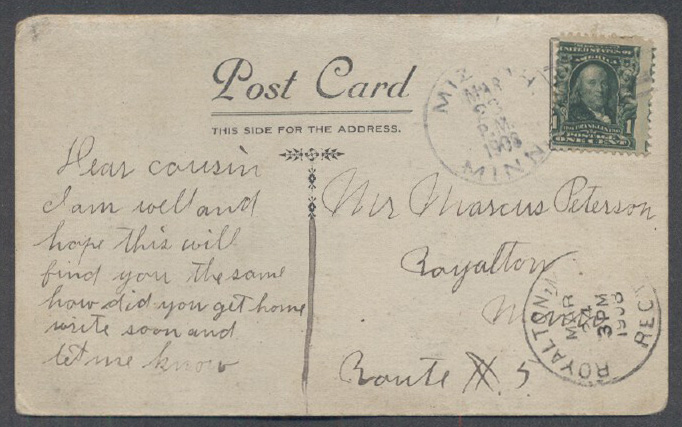 Post Card
THIS SIDE FOR THE ADDRESS.
UNITED STATES OF
AMERICA
FRANKLIN
1 POSTAGE 1
ONE CENT
MIZ
MAR
23
P.M.
1908
MINN
Dear cousin
I am well and
hope this will
find you the same
how did you get home
write soon and
let me know
Mr Marcus Peterson
Royalton
Minn
Route #. 5
ROYALTON
MAR
24
3 PM
1908
REC'